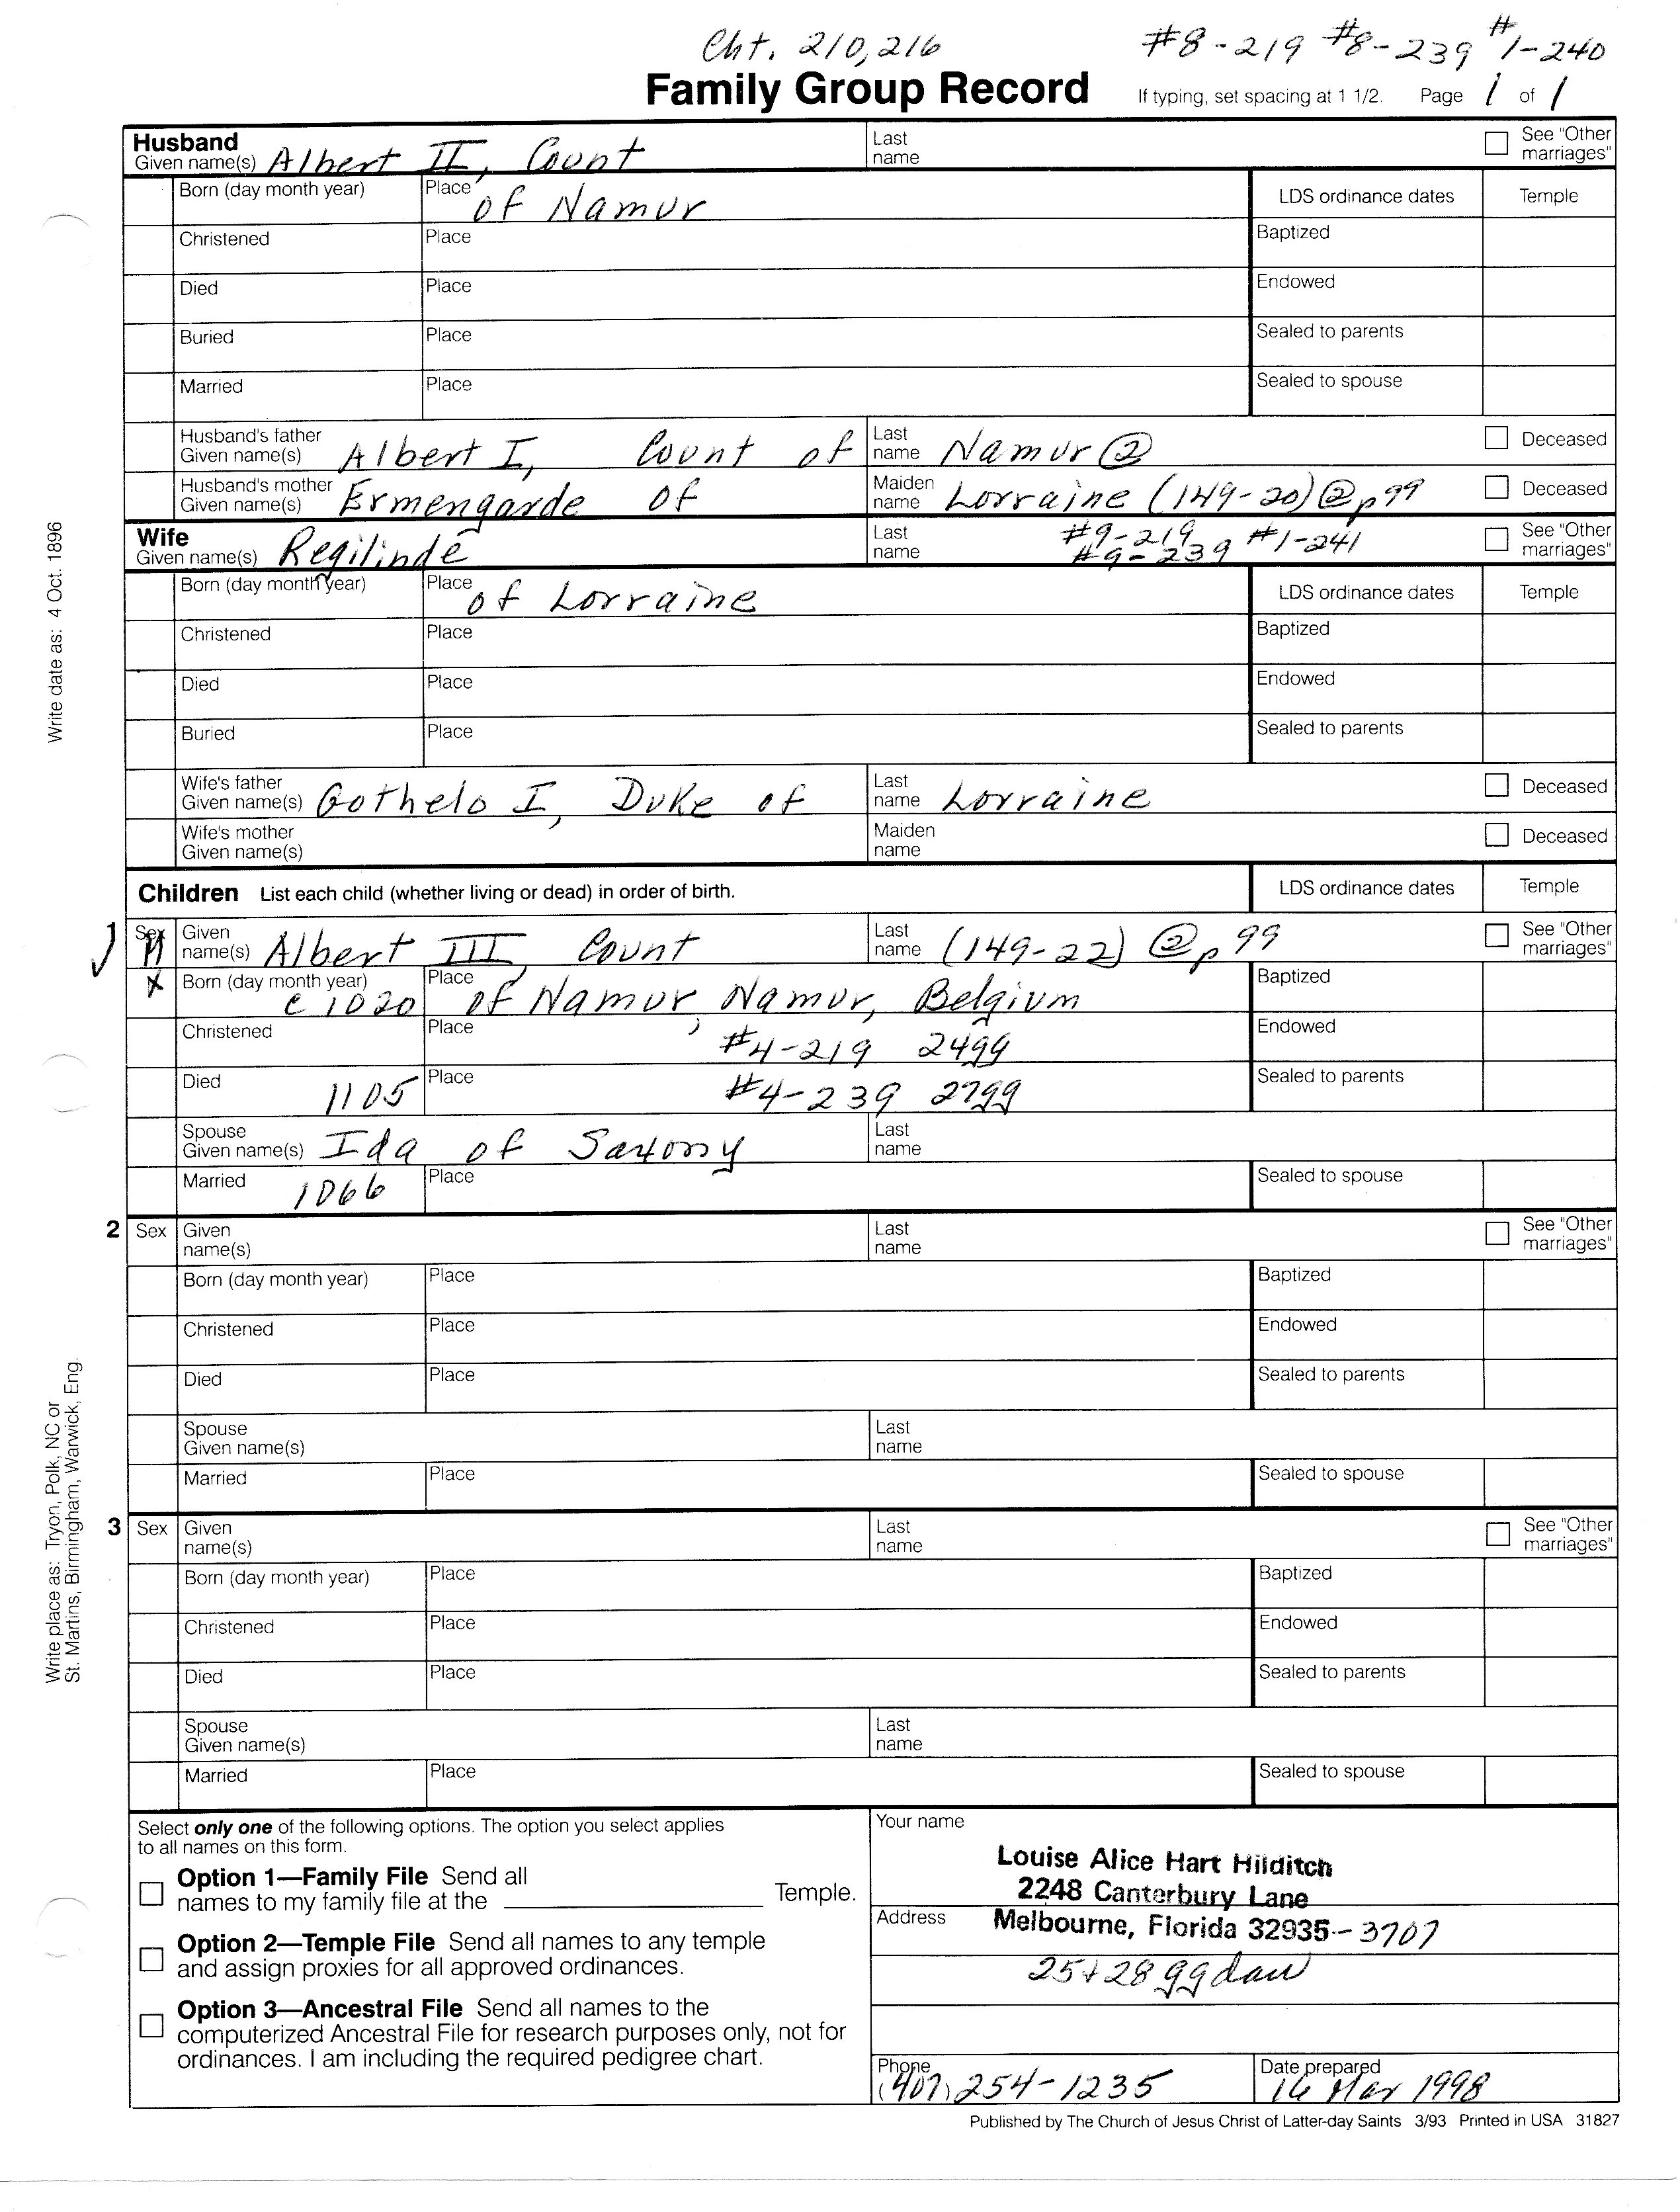 Cht. 210, 216 #8-219 #8-239 #1-240
Family Group Record If typing, set spacing at 1 1/2. Page 1 of 1
Husband Given name(s) Albert II, Count Last name See "Other marriages"
Born (day month year) Place of Namur LDS ordinance dates Temple
Christened Place Baptized
Died Place Endowed
Buried Place Sealed to parents
Married Place Sealed to spouse
Husband's father Given name(s) Albert I, Count of Last name Namur ② Deceased
Husband's mother Given name(s) Ermengarde of Maiden name Lorraine (149-20) ② p 99 Deceased
Wife Given name(s) Regilinde Last name #9-219 #9-239 #1-241 See "Other marriages"
Born (day month year) Place of Lorraine LDS ordinance dates Temple
Christened Place Baptized
Died Place Endowed
Buried Place Sealed to parents
Wife's father Given name(s) Gothelo I, Duke of Last name Lorraine Deceased
Wife's mother Given name(s) Maiden name Deceased
Children List each child (whether living or dead) in order of birth. LDS ordinance dates Temple
1 Sex M Given name(s) Albert III Count Last name (149-22) ② p 99 See "Other marriages"
X Born (day month year) c 1020 Place of Namur, Namur, Belgium Baptized
Christened Place #4-219 24gg Endowed
Died 1105 Place #4-239 27gg Sealed to parents
Spouse Given name(s) Ida of Saxony Last name
Married 1066 Place Sealed to spouse
2 Sex Given name(s) Last name See "Other marriages"
Born (day month year) Place Baptized
Christened Place Endowed
Died Place Sealed to parents
Spouse Given name(s) Last name
Married Place Sealed to spouse
3 Sex Given name(s) Last name See "Other marriages"
Born (day month year) Place Baptized
Christened Place Endowed
Died Place Sealed to parents
Spouse Given name(s) Last name
Married Place Sealed to spouse
Write date as: 4 Oct. 1896
Write place as: Tryon, Polk, NC or
St. Martins, Birmingham, Warwick, Eng.
Select only one of the following options. The option you select applies
to all names on this form.
Option 1—Family File Send all
names to my family file at the Temple.
Option 2—Temple File Send all names to any temple
and assign proxies for all approved ordinances.
Option 3—Ancestral File Send all names to the
computerized Ancestral File for research purposes only, not for
ordinances. I am including the required pedigree chart.
Your name
Louise Alice Hart Hilditch
2248 Canterbury Lane
Address Melbourne, Florida 32935--3707
25+28 ggdau
Phone (407) 254-1235 Date prepared 16 Mar 1998
Published by The Church of Jesus Christ of Latter-day Saints 3/93 Printed in USA 31827